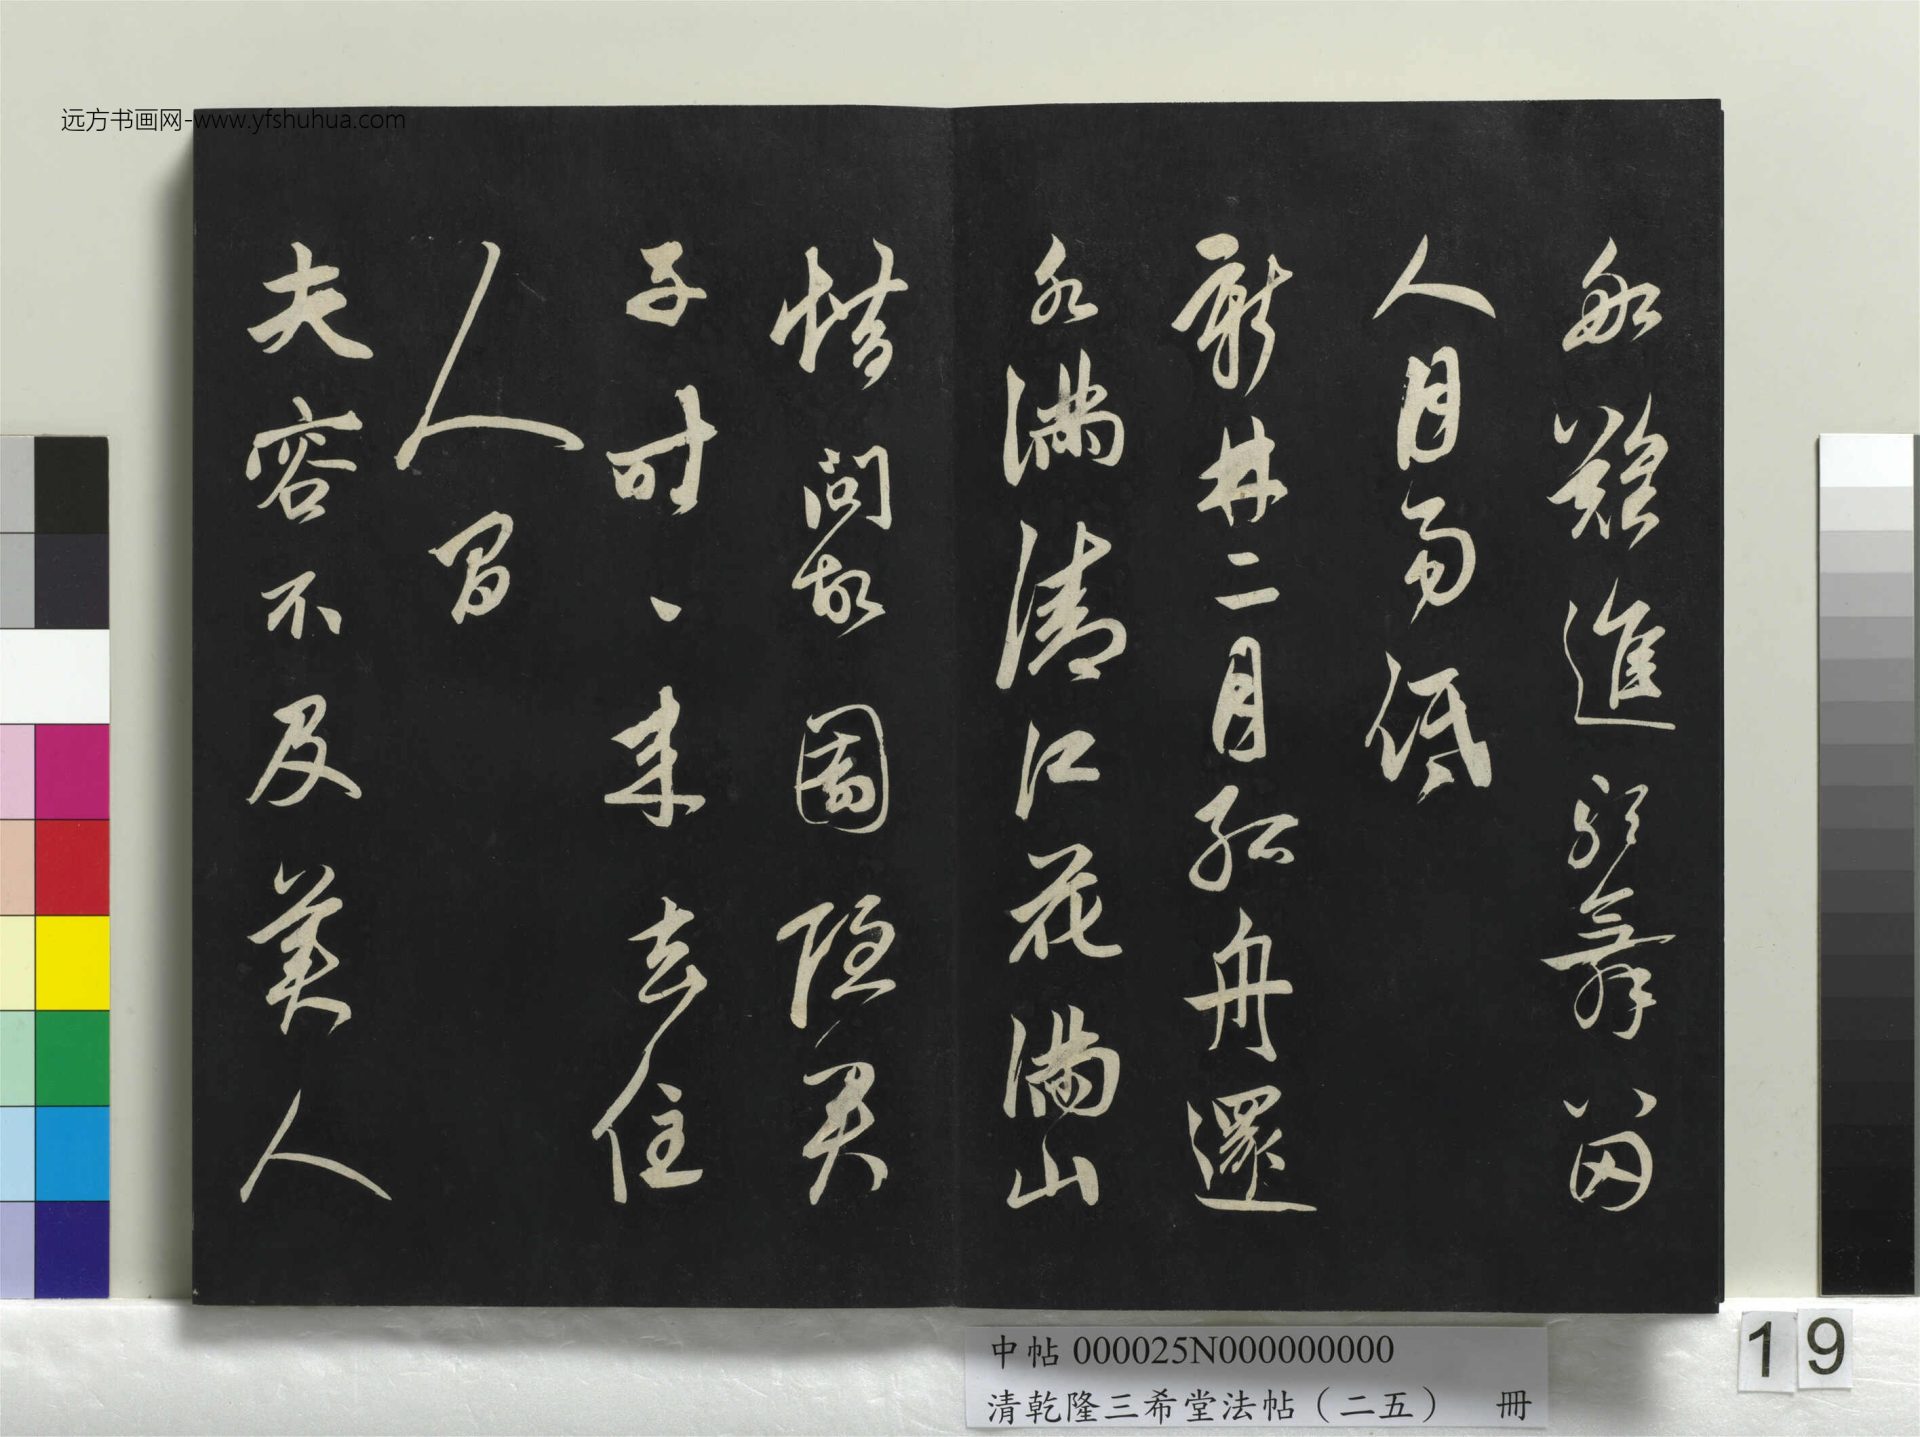 船難進歌舞留
人月易低
新林二月孤舟還
水滿清江花滿山
借問故園隱君
子時、來去住
人間
夫容不及美人
远方书画网-www.yfshuhua.com
中帖 000025N000000000
清乾隆三希堂法帖（二五） 冊
19